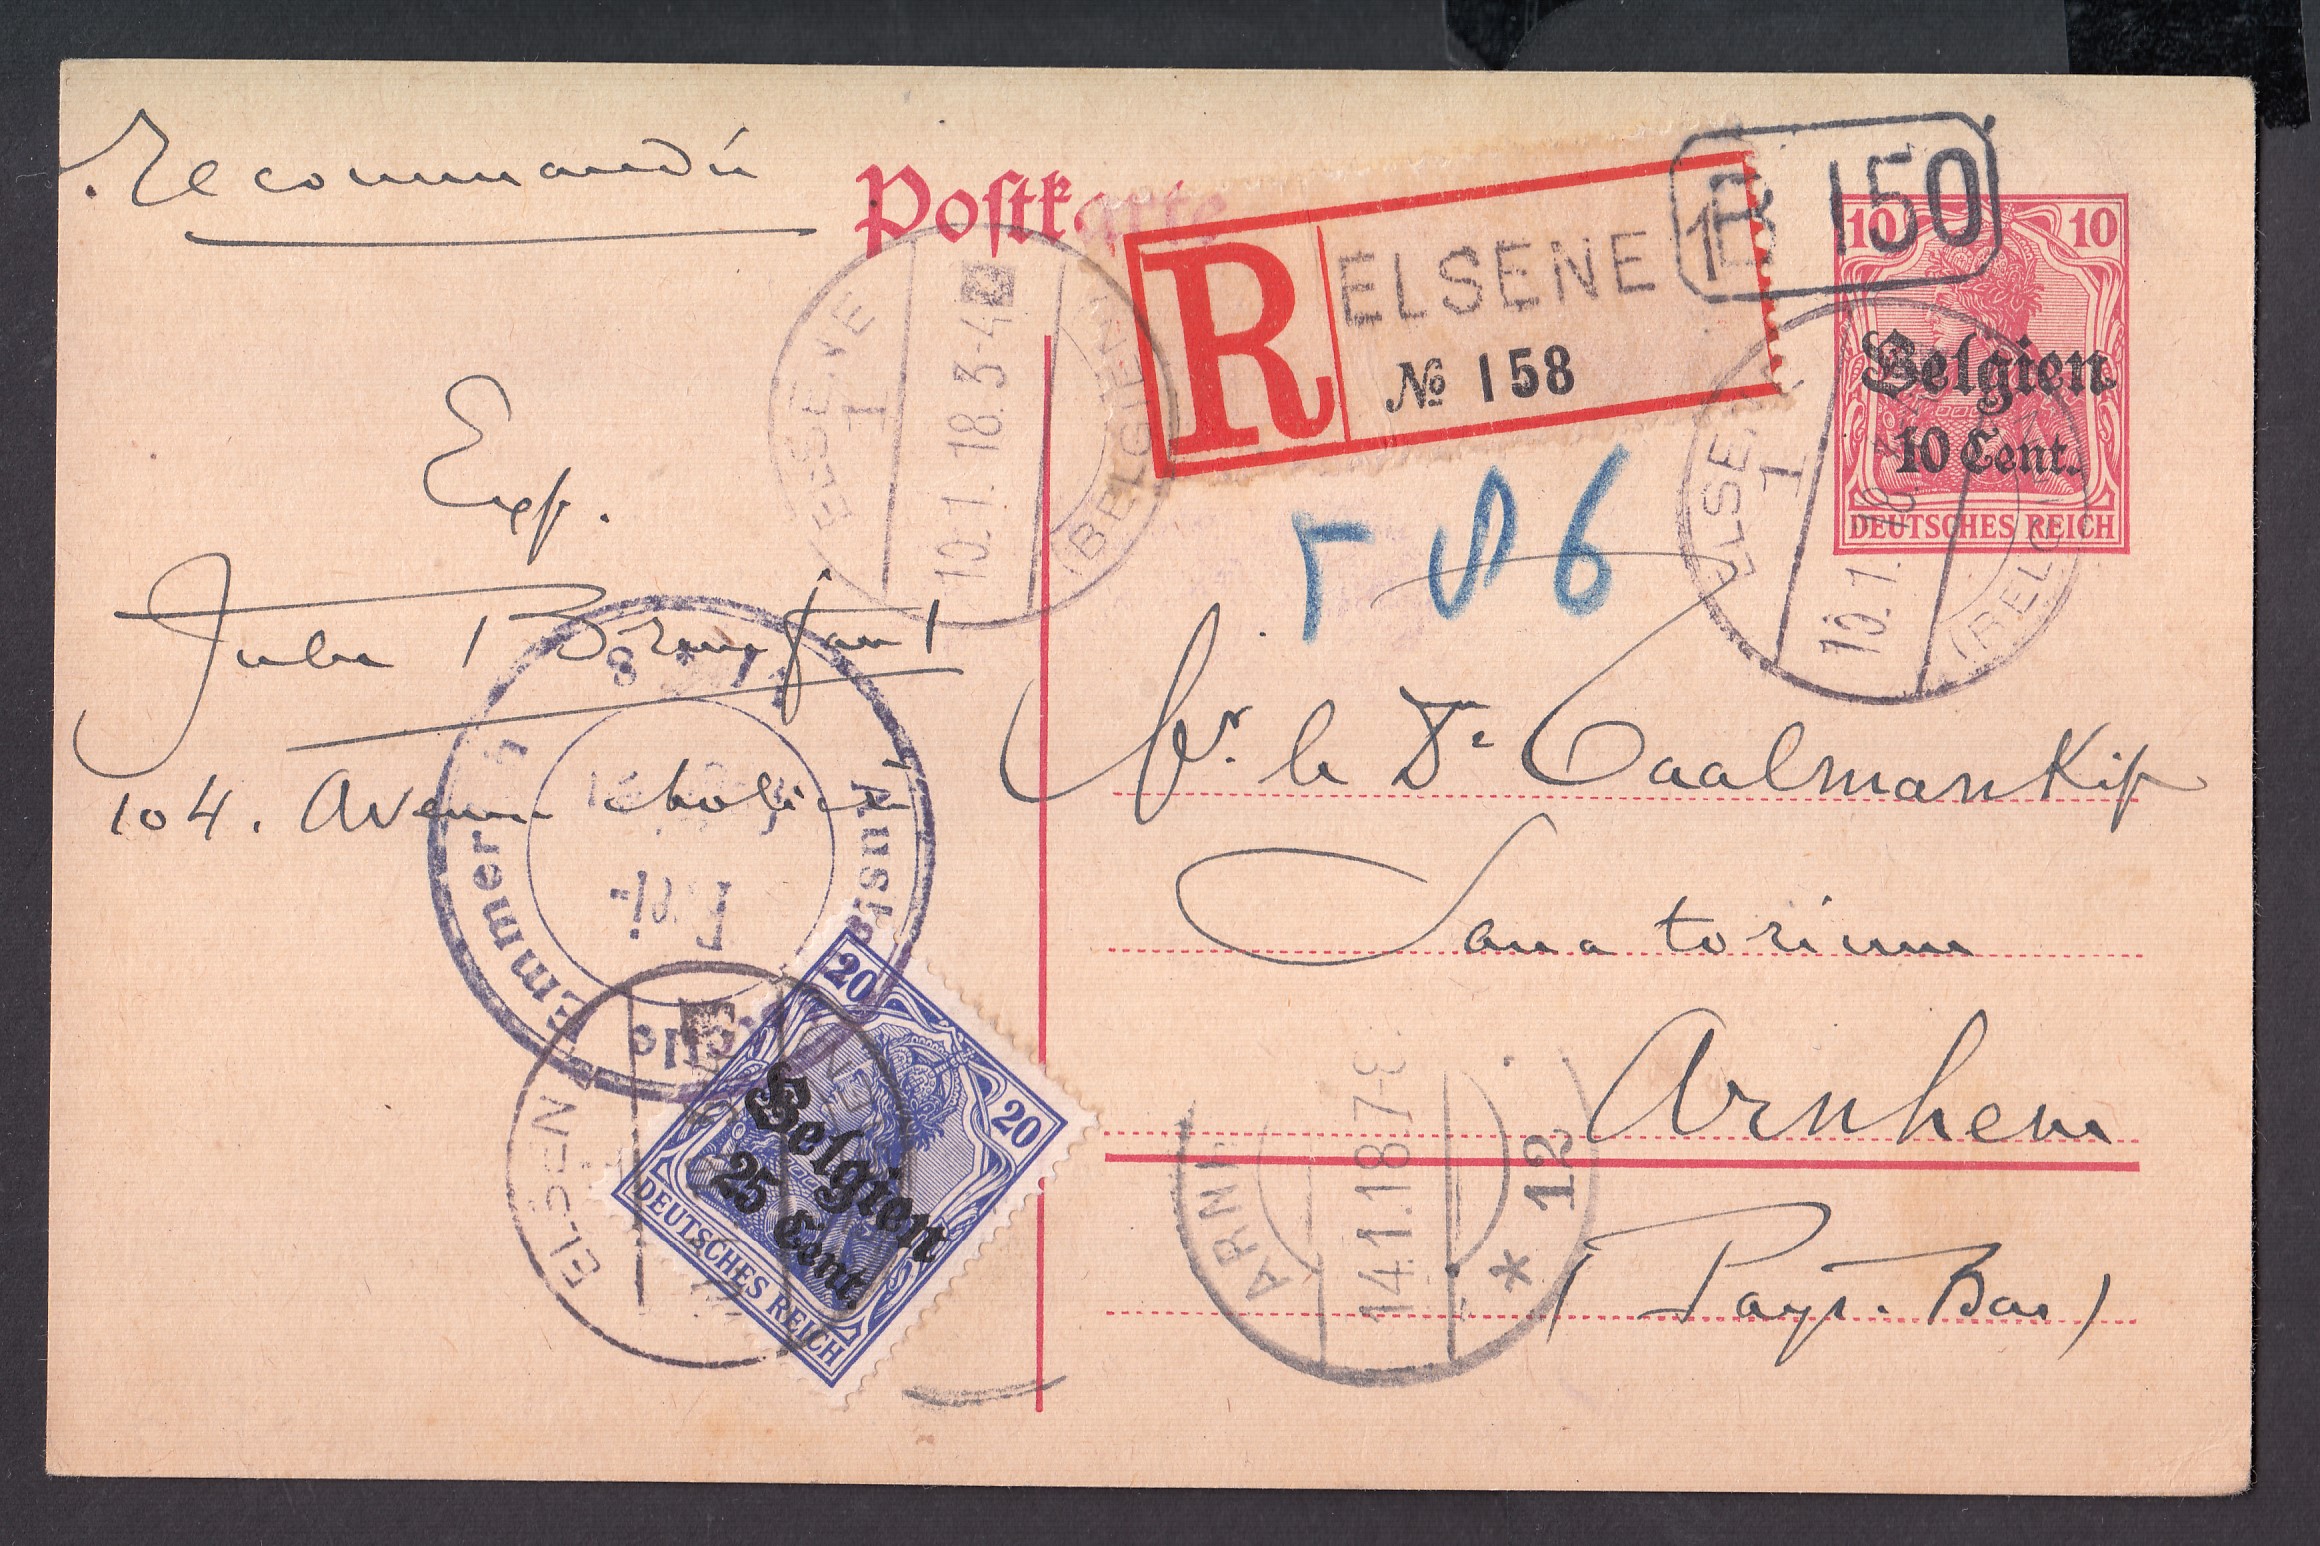 Recommandé
Postkarte
R ELSENE 1
№ 158
B 150
10 10
Belgien
10 Cent.
DEUTSCHES REICH
ELSENE 1
10.1.18.3-4
(BELGIEN)
ELSENE 1
10.1.18
(BELGIEN)
586
Exp.
Jules
104. Avenue
Mr. le Dr Caalmankip
Sanatorium
Arnhem
(Pays-Bas)
Emmerich
Frei
ELSENE
20 20
Belgien
25 Cent.
DEUTSCHES REICH
ARNH
14.1.18 7-8
* 12